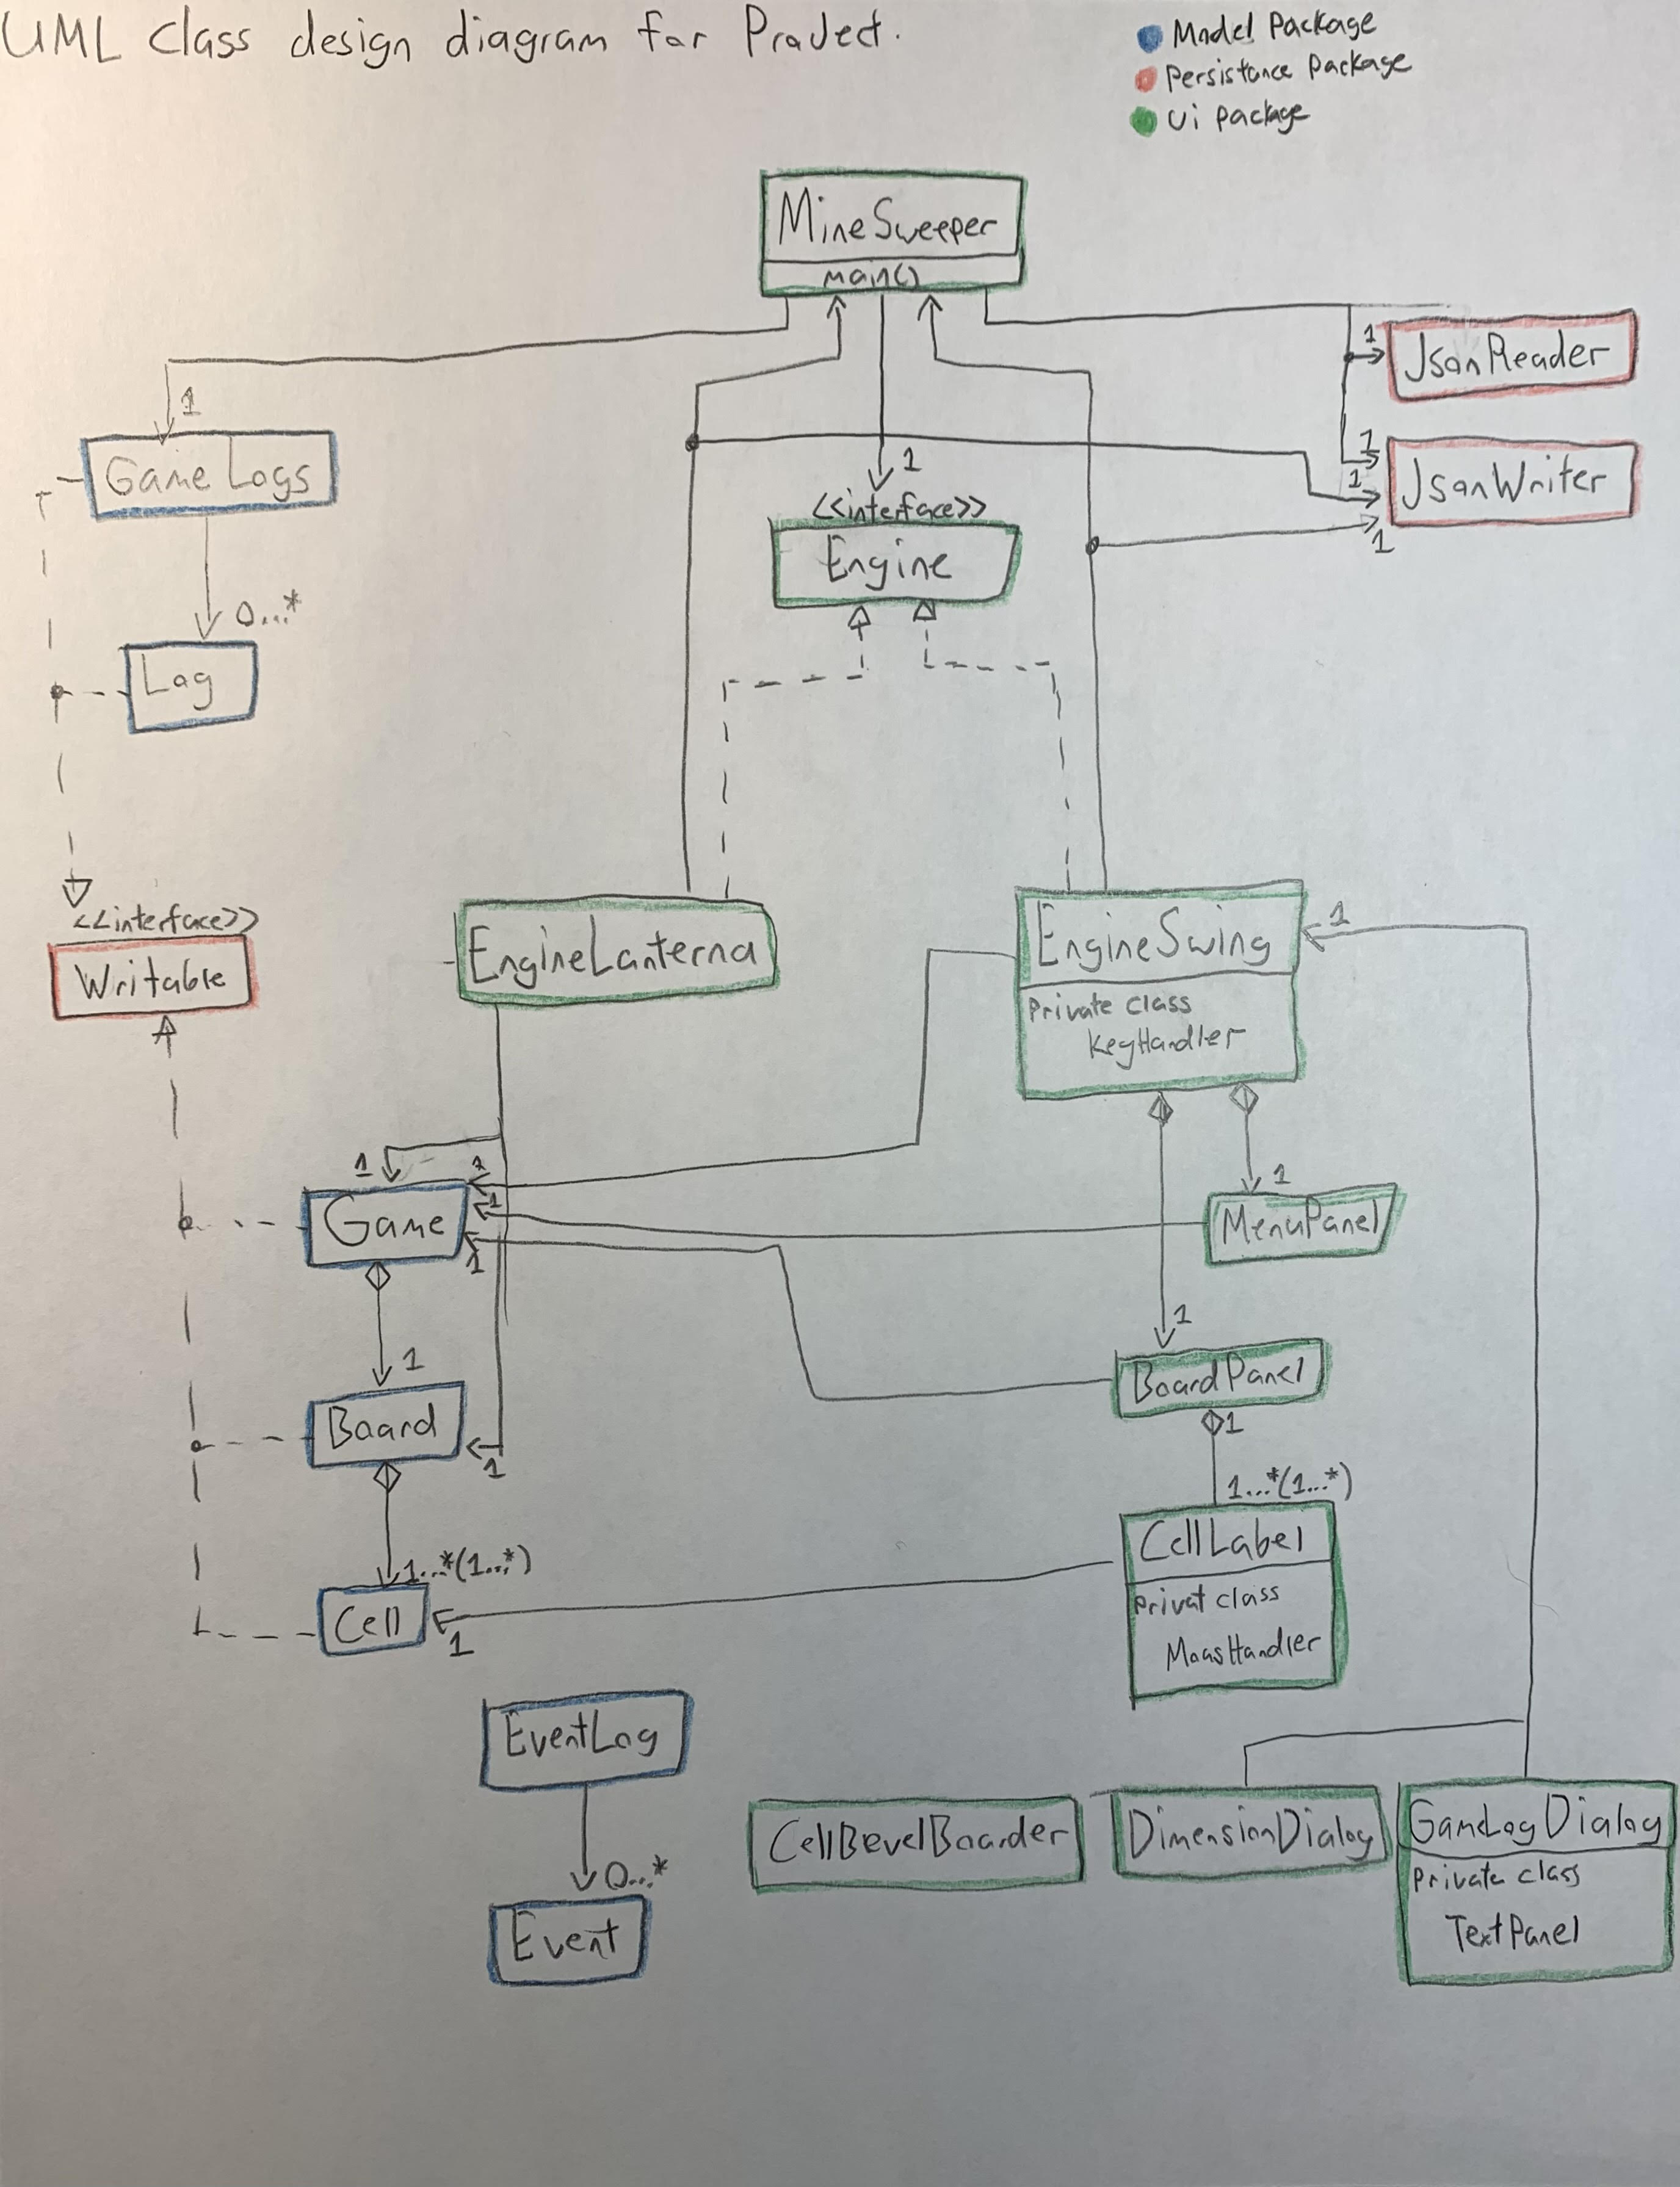 UML class design diagram for Project.
Model Package
Persistance Package
Ui Package
MineSweeper
main()
1
JsonReader
1
Game Logs
1
1
1
JsonWriter
1
<<interface>>
Engine
0...*
Log
<<interface>>
Writable
EngineLanterna
EngineSwing
1
Private class
KeyHandler
1
1
1
1
1
Game
MenuPanel
1
1
Board
1
BoardPanel
1
1...*(1...*)
1...*(1...*)
Cell
1
CellLabel
Privat class
MousHandler
EventLog
0...*
Event
CellBevelBoarder
DimensionDialog
GameLogDialog
Private class
TextPanel